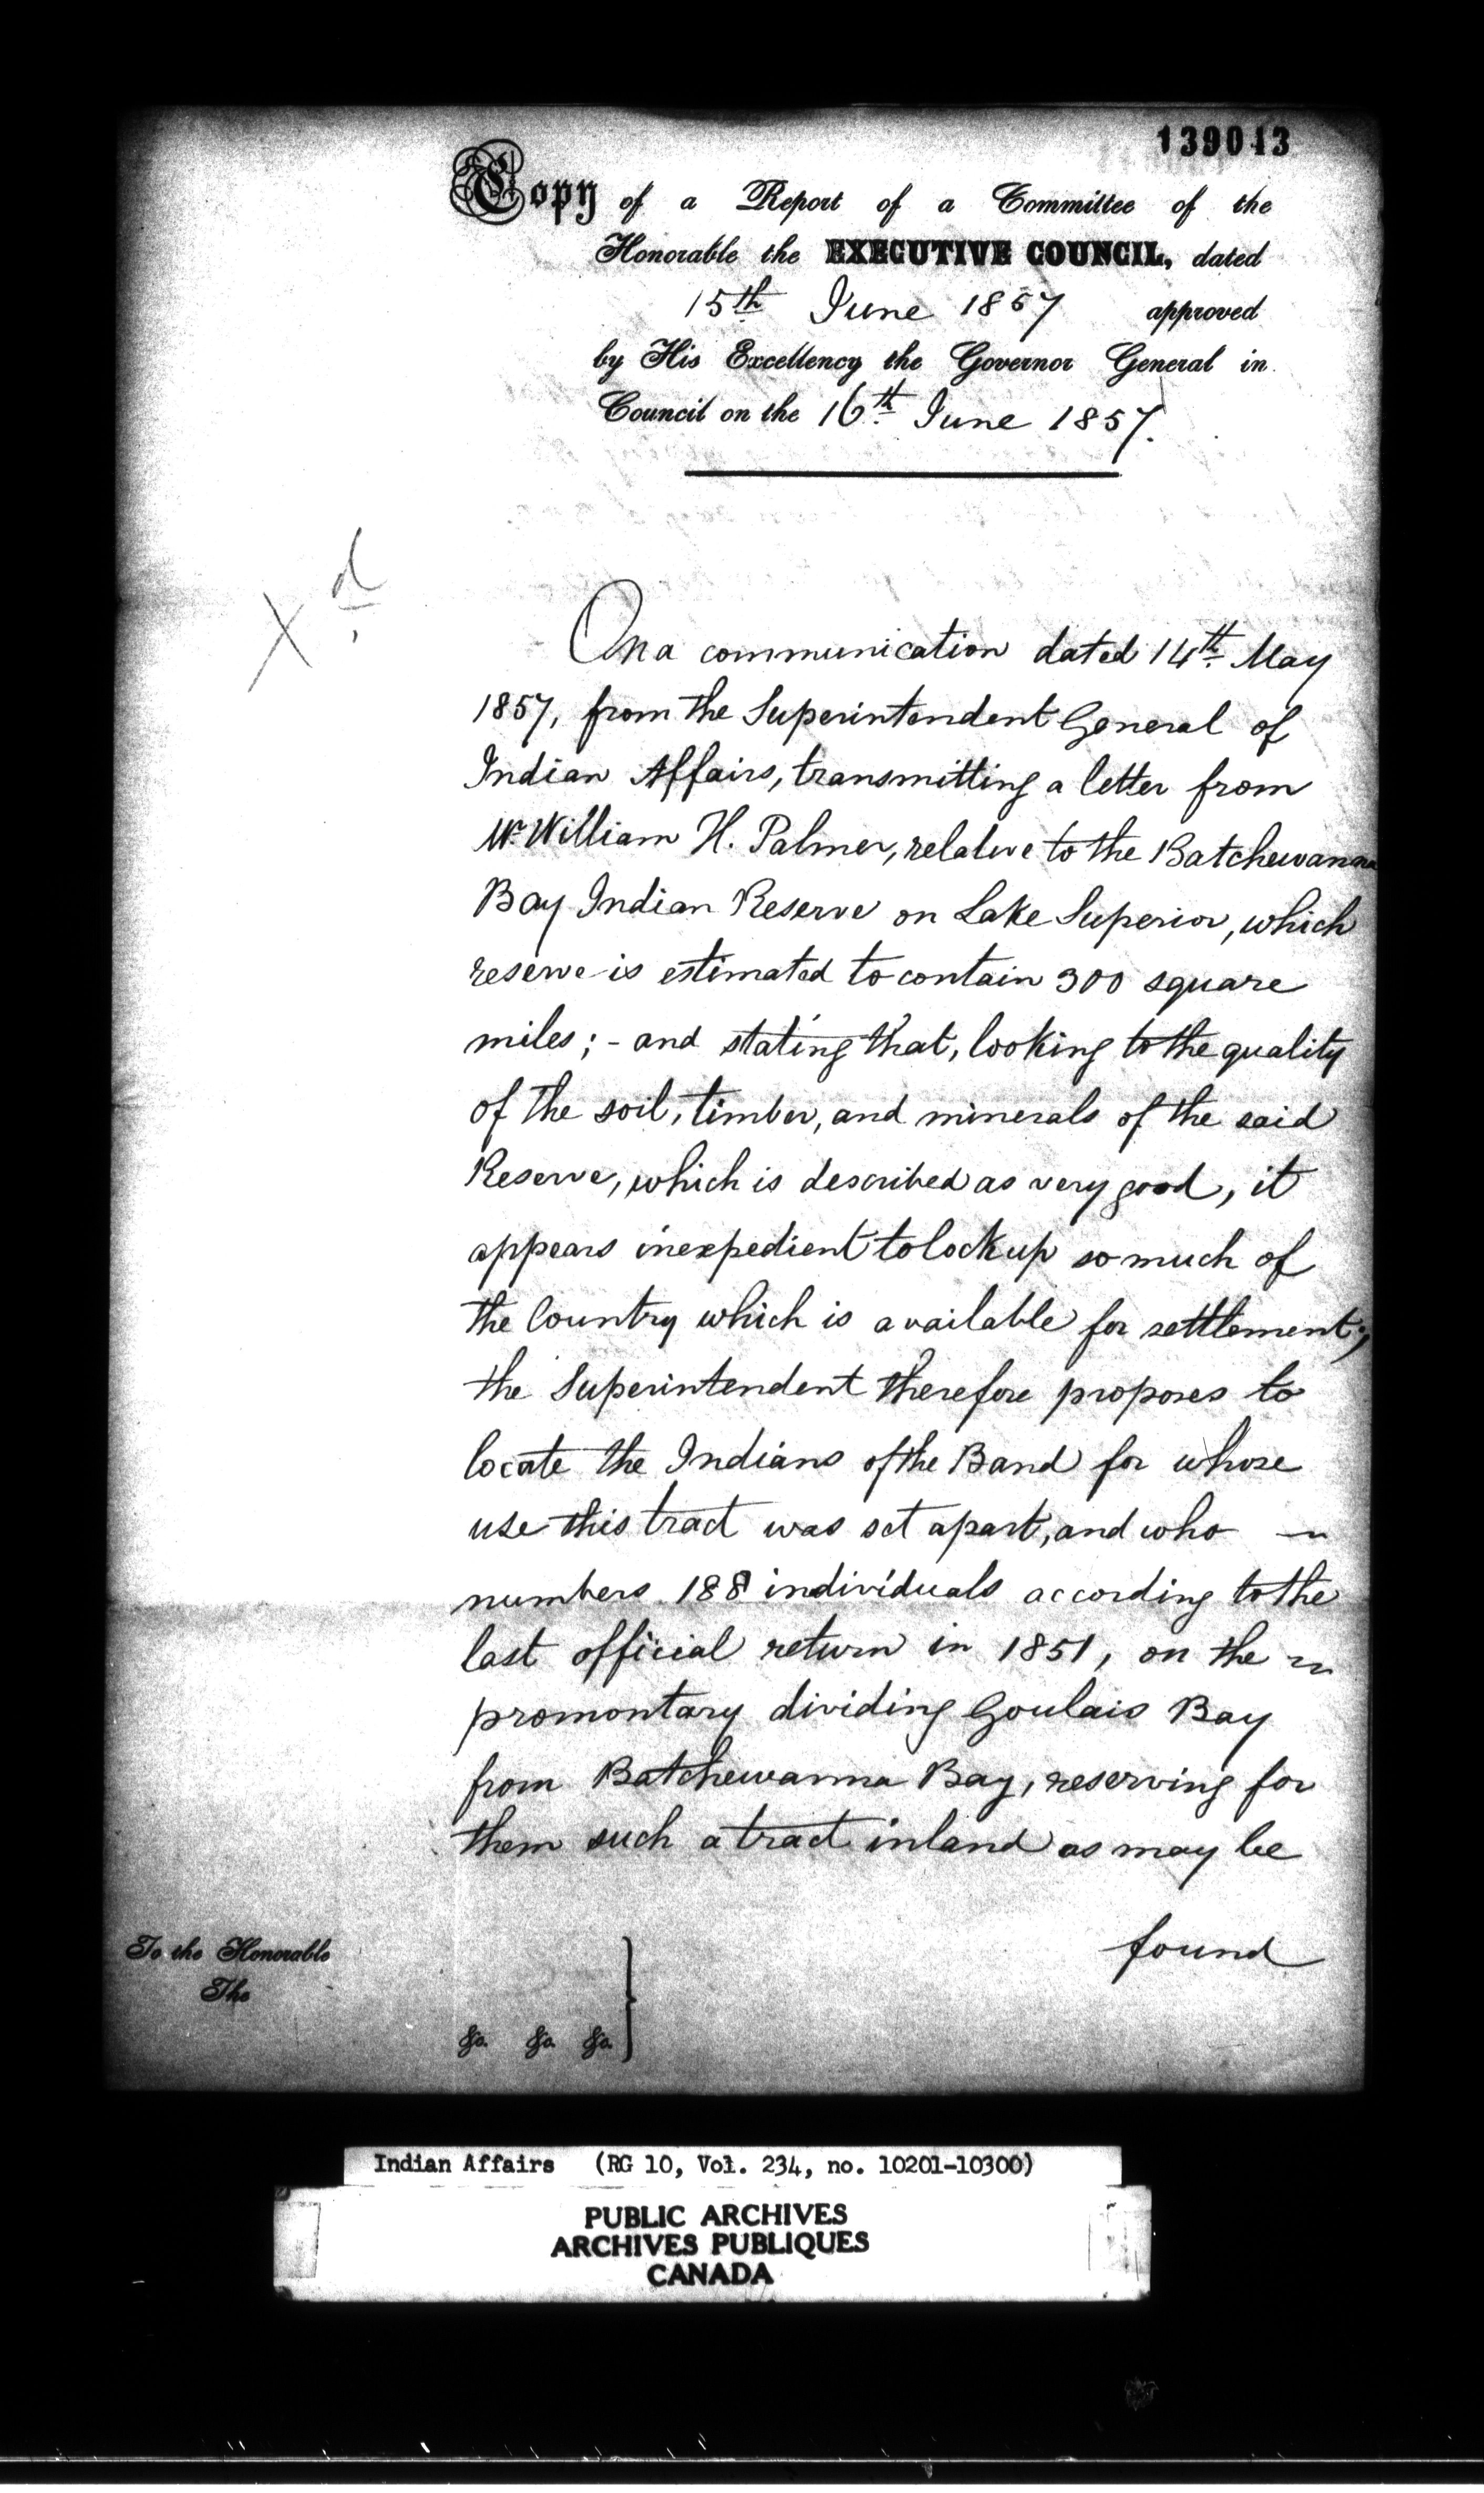 139043
Copy of a Report of a Committee of the
Honorable the EXECUTIVE COUNCIL, dated
15th June 1857 approved
by His Excellency the Governor General in
Council on the 16th June 1857.
Xd
On a communication dated 14th May
1857, from the Superintendent General of
Indian Affairs, transmitting a letter from
Mr. William H. Palmer, relative to the Batchewanna
Bay Indian Reserve on Lake Superior, which
reserve is estimated to contain 300 square
miles; - and stating that, looking to the quality
of the soil, timber, and minerals of the said
Reserve, which is described as very good, it
appears inexpedient to lock up so much of
the Country which is available for settlement;
the Superintendent therefore proposes to
locate the Indians of the Band for whose
use this tract was set apart, and who
numbers 188 individuals according to the
last official return in 1851, on the
promontary dividing Goulais Bay
from Batchewanna Bay, reserving for
them such a tract inland as may be
found
To the Honorable
The
&c. &c. &c. }
Indian Affairs (RG 10, Vol. 234, no. 10201-10300)
PUBLIC ARCHIVES
ARCHIVES PUBLIQUES
CANADA